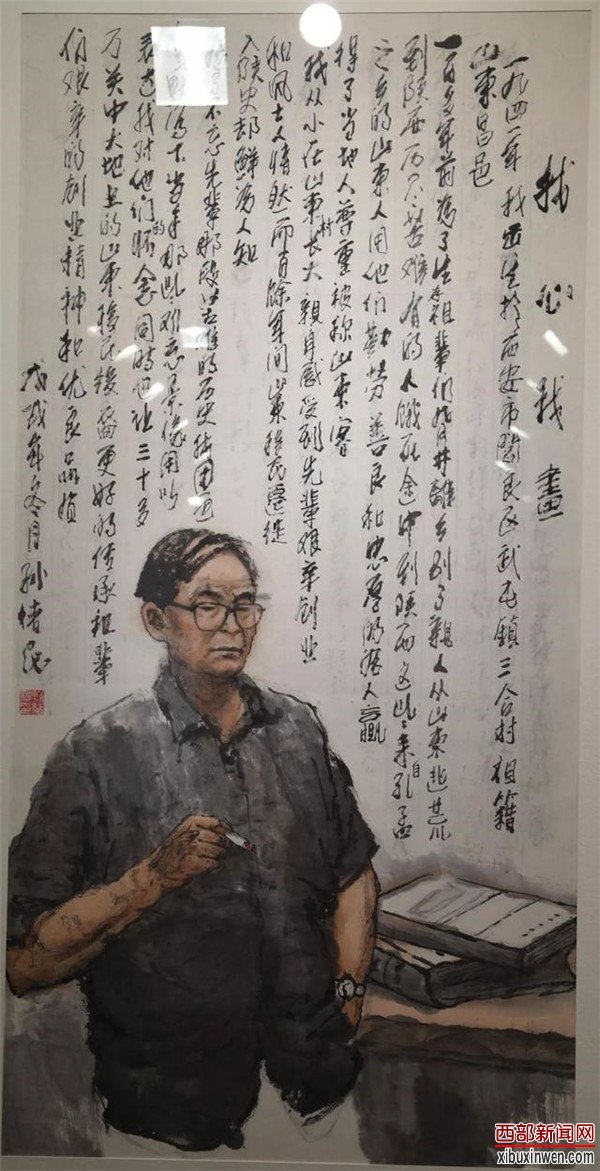 我心我畫
一九四一年我出生於西安市閻良区武屯鎮三合村祖籍
山東昌邑
一百多年前為了生存祖辈们背井離乡别了親人从山東逃荒
到陕西历尽苦难有的人饿死途中到陕西这些来自孔孟
之乡的山東人用他们勤劳善良和忠厚的為人赢
得了当地人尊重被称山東客
我从小在山東村长大親身感受到先輩艰辛创业
和风土人情然而百餘年间山東移民遷徙
入陕史却鲜為人知
不忘先辈那段苦难的历史我用画
写下当年那些难忘景像用以
表达我对他们的怀念同时也让三十多
万关中大地上的山東移民後裔更好的传承祖辈
们艰辛的创业精神和优良品质
戊戌年冬月孙绪
西部新闻网
xibuxinwen.com